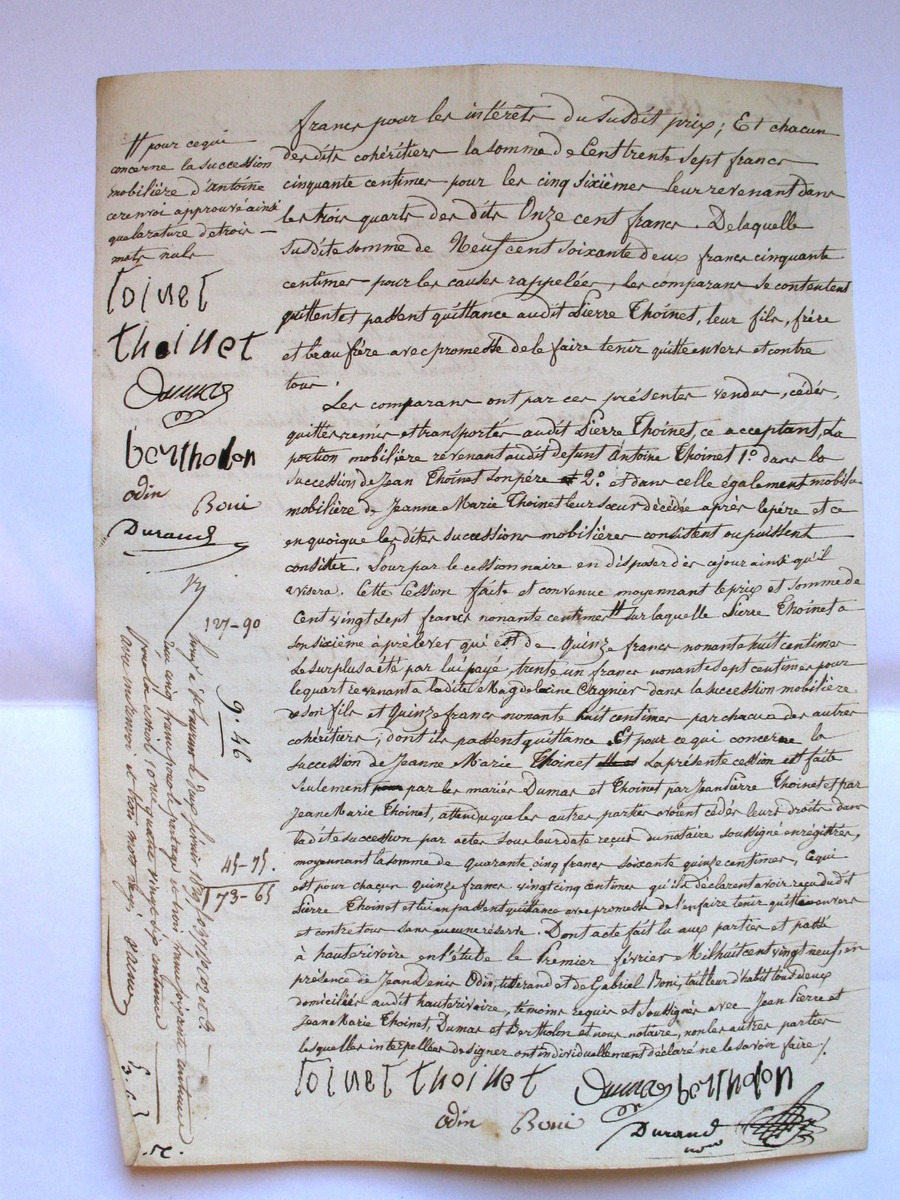 francs pour les intérêts du susdit prix; Et chacun
des dits cohéritiers la somme de Cent trente sept francs
cinquante centimes pour les cinq sixièmes leur revenant dans
les trois quarts des dits Onze cent francs. De laquelle
susdite somme de Neuf cent soixante deux francs cinquante
centimes pour les causes rappelées, les comparans se contentent
quittent et passent quittance audit Pierre Thoinet, leur fils, frère
et beau frère avec promesse de le faire tenir quitte envers et contre
tous.
Les comparans ont par ces présentes vendus, cédés,
quittés remis et transportés audit Pierre Thoinet, ce acceptant, La
portion mobilière revenant audit defunt Antoine Thoinet 1.º dans la
succession de Jean Thoinet son père 2.º et dans celle également mobili-
mobilière de Jeanne Marie Thoinet leur sœur décédée après le père et ce
en quoique les dites successions mobilières consistent ou puissent
consister. Pour par le cessionnaire en disposer dès ce jour ainsi qu'il
avisera. Cette Cession faite et convenue moyennant le prix et somme de
Cent vingt sept francs nonante centimes # sur laquelle Pierre Thoinet a
son sixième à prélever qui est de Quinze francs nonante huit centimes
Le surplus a été par lui payé, trente un francs nonante sept centimes pour
le quart revenant à la dite Magdelaine Cagnier dans la succession mobilière
de son fils et Quinze francs nonante huit centimes par chacun des autres
cohéritiers; dont ils passent quittance Et pour ce qui concerne la
succession de Jeanne Marie Thoinet La présente cession est faite
seulement par les mariés Dumas et Thoinet par Jean Pierre Thoinet et par
Jeane Marie Thoinet, attendu que les autres parties avoient cédés leurs droits dans
la dite succession par actes sous leur date reçus du notaire soussigné enregistrés,
moyennant la somme de Quarante cinq francs soixante quinze centimes, Ce qui
est pour chacun quinze francs vingt cinq centimes qu'ils déclarent avoir reçu dudit
Pierre Thoinet et lui en passent quittance avec promesse de l'en faire tenir quitte envers
et contre tous sans aucune réserve. Dont acte fait lu aux parties et passé
à hauterivoire en l'étude le Premier février Mil huit cent vingt neuf, en
présence de Jean Denis Odin, tisserand et de Gabriel Boni, tailleur d'habit tous deux
domiciliés audit hauterivoire, témoins requis et soussignés avec Jean Pierre et
Jeane Marie Thoinet, Dumas et Bertholon et nous notaire, non les autres parties
lesquelles interpellées de signer ont individuellement déclaré ne le savoir faire./.
toinet thoinet Dumas bertholon
odin Boni Durand
nore
# pour ce qui
concerne la succession
mobilière d'Antoine
ce renvoi approuvé ainsi
que la rature de trois
mots nuls
toinet
thoinet
Dumas
bertholon
odin Boni
Durand
127-90
9.46
45-75.
73-65